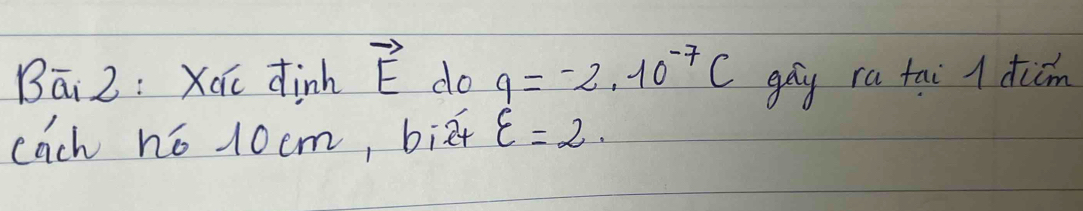 Bài 2: Xác định E→ do q = -2.10⁻⁷C gây ra tại 1 điểm
cách nó 10cm, biết ε = 2.